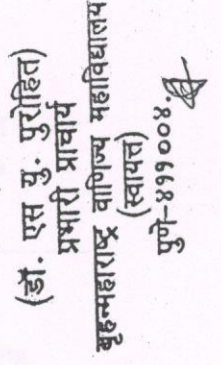 (डॉ. एस यु. पुरोहित)
प्रभारी प्राचार्य
बृहन्महाराष्ट्र वाणिज्य महाविद्यालय
(स्वायत्त)
पुणे-४११ ००४.